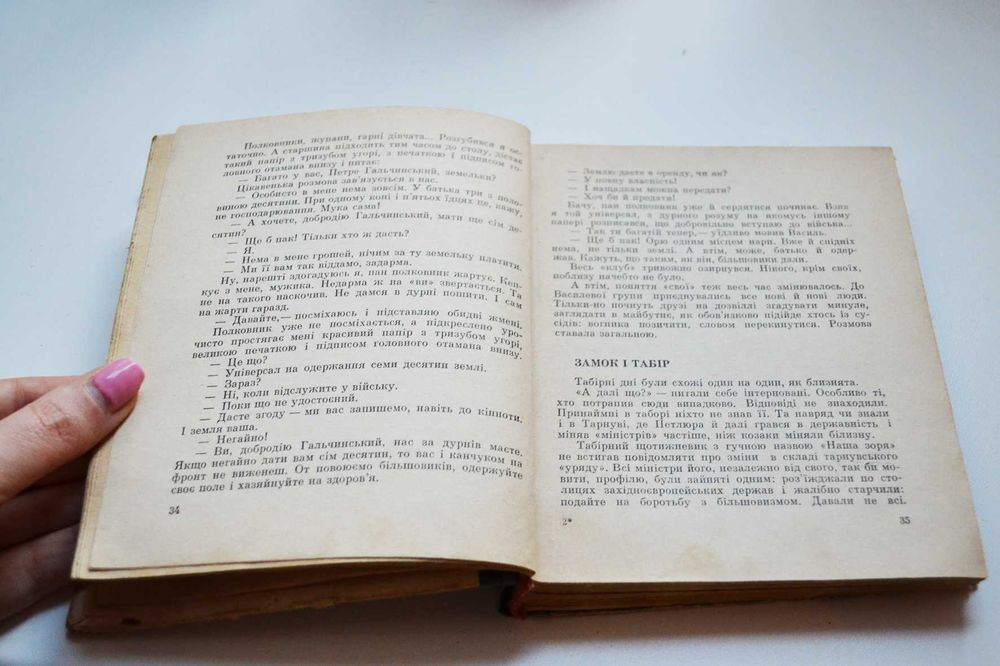 Полковники, жупани, гарні дівчата... Розгубився я ос-
таточно. А старшина підходить тим часом до столу, дістає
такий папір з тризубом угорі, з печаткою і підписом го-
ловного отамана внизу і питає:
— Багато у вас, Петре Гальчинський, земельки?
Цікавенька розмова зав'язується в нас.
— Особисто в мене нема зовсім. У батька три з поло-
виною десятини. При одному коні і п'ятьох їдцях це, кажу,
не господарювання. Мука сама!
— А хочете, добродію Гальчинський, мати ще сім де-
сятин?
— Ще б пак! Тільки хто ж дасть?
— Я.
— Нема в мене грошей, нічим за ту земельку платити.
— Ми її вам так віддамо, задарма.
Ну, нарешті здогадуюсь я, пан полковник жартує. Кеп-
кує з мене, мужика. Недарма ж на «ви» звертається. Та
не на такого наскочив. Не дамся в дурні пошити. І сам
на жарти гаразд.
— Давайте,— посміхаюсь і підставляю обидві жмені.
Полковник уже не посміхається, а підкреслено уро-
чисто простягає мені красивий папір з тризубом угорі,
великою печаткою і підписом головного отамана внизу.
— Це що?
— Універсал на одержання семи десятин землі.
— Зараз?
— Ні, коли відслужите у війську.
— Поки що не удостоєний.
— Дасте згоду — ми вас запишемо, навіть до кінноти.
І земля ваша.
— Негайно!
— Ви, добродію Гальчинський, нас за дурнів маєте.
Якщо негайно дати вам сім десятин, то вас і канчуком на
фронт не виженеш. От повоюємо більшовиків, одержуйте
своє поле і хазяйнуйте на здоров'я.
34
— Землю даєте в оренду, чи як?
— У повну власність!
— І нащадкам можна передати?
— Хоч би й продати!
Бачу, пан полковник уже й сердитися починає. Взяв
я той універсал, з дурного розуму на якомусь іншому
папері розписався, що добровільно вступаю до війська...
— Так ти багатій тепер,— уїдливо мовив Василь.
— Ще б пак! Орю одним місцем нари. Вже й спідніх
нема, не тільки землі. А втім, може, батько й одер-
жав. Кажуть, що таким, як він, більшовики дали.
Весь «клуб» тривожно озирнувся. Нікого, крім своїх,
поблизу начебто не було.
А втім, поняття «свої» теж весь час змінювалось. До
Василевої групи приєднувались все нові й нові люди.
Тільки-но почнуть друзі на дозвіллі згадувати минуле,
заглядати в майбутнє, як обов'язково підійде хтось із су-
сідів: вогника позичити, словом перекинутися. Розмова
ставала загальною.
ЗАМОК І ТАБІР
Табірні дні були схожі один на один, як близнята.
«А далі що?» — питали себе інтерновані. Особливо ті,
хто потрапив сюди випадково. Відповіді не знаходили.
Принаймні в таборі ніхто не знав її. Та навряд чи знали
і в Тарнуві, де Петлюра й далі грався в державність і
міняв «міністрів» частіше, ніж козаки міняли білизну.
Табірний щотижневик з гучною назвою «Наша зоря»
не встигав повідомляти про зміни в складі тарнувського
«уряду». Всі міністри його, незалежно від свого, так би мо-
вити, профілю, були зайняті одним: роз'їжджали по сто-
лицях західноєвропейських держав і жалібно старчили:
подайте на боротьбу з більшовизмом. Давали не всі.
2*
35